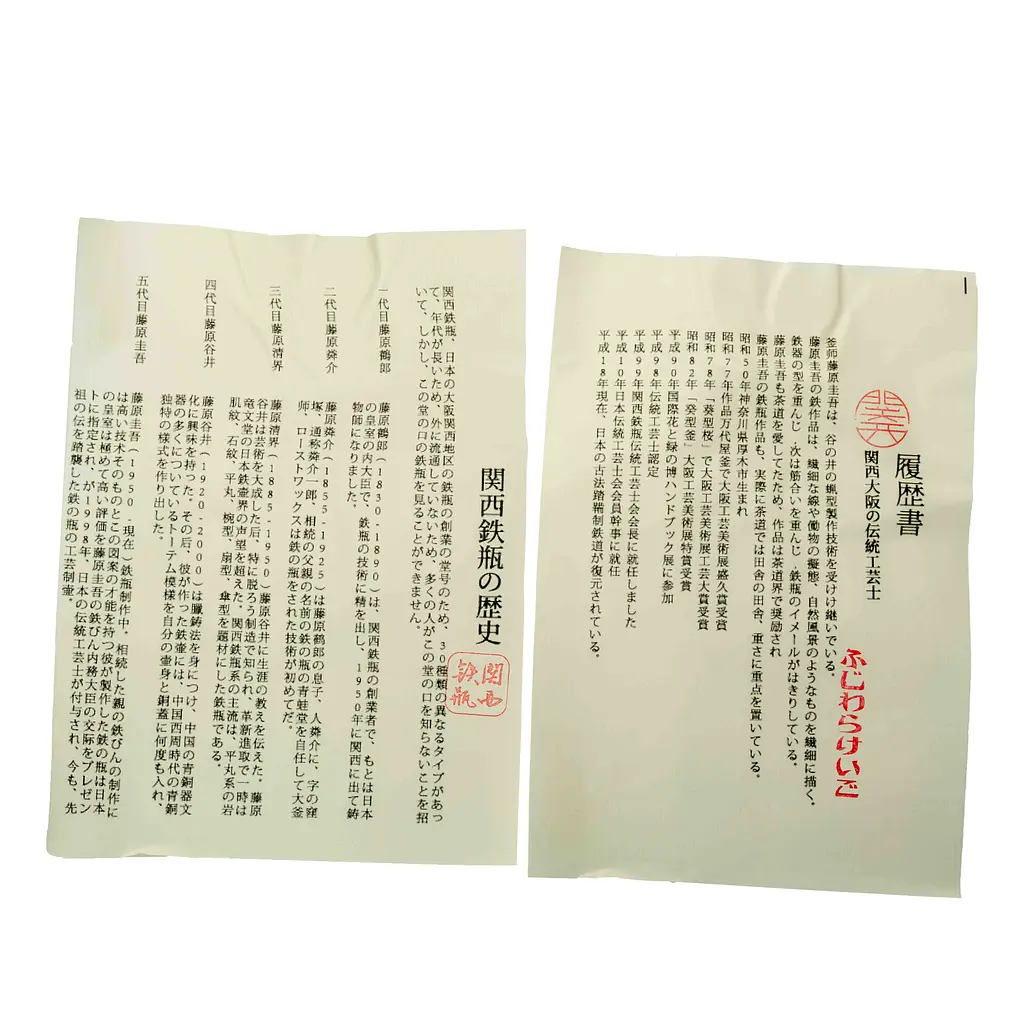 履歴書
関西大阪の伝統工芸士
ふじわらけいご
釜师藤原圭吾は、谷の井の蝋型製作技術を受けけ継いでいる。
藤原圭吾の鉄作品は、繊細な線や働物の擬態、自然風景のようなものを繊細に描く。
鉄器の型を重んじ．次は筋合いを重んじ．鉄瓶のイメールがはきりしている。
藤原圭吾も茶道を愛してたため、作品は茶道界で奨励され
藤原圭吾の鉄瓶作品も、実際に茶道では田舎の田舎、重さに重点を置いている。
昭和50年神奈川県厚木市生まれ
昭和77年作品万代屋釜で大阪工芸美術展盛久賞受賞
昭和78年「葵型桜」で大阪工芸美術展工芸大賞受賞
昭和82年「葵型釜」大阪工芸美術展特賞受賞
平成90年国際花と緑の博ハンドブック展に参加
平成98年伝統工芸士認定
平成99年関西鉄瓶伝統工芸士会会長に就任しました
平成10年日本伝統工芸士会会員幹事に就任
平成18年現在、日本の古法踏鞴制鉄道が復元されている。
関西鉄瓶の歴史
関西
鉄瓶
関西鉄瓶、日本の大阪関西地区の鉄瓶の創業の堂号のため、30種類の異なるタイプがあっ
て、年代が長いため、外に流通していないため、多くの人がこの堂の口を知らないことを招
いて、しかし、この堂の口の鉄瓶を見ることができません。
一代目藤原鶴郎
藤原鶴郎（1830-1890）は、関西鉄瓶の創業者で、もとは日本
の皇室の内大臣で、鉄瓶の技術に精を出し、1950年に関西に出て鋳
物師になりました。
二代目藤原舜介
藤原舜介（1855-1925）は藤原鶴郎の息子、人舜介に、字の窪
塚、通称舜介一郎、相続の父親の名前の鉄の瓶の青蛙堂を自任して大釜
师、ローストワックスは鉄の瓶をされた技術が初めてだ。
三代目藤原清界
藤原清界（1885-1950）藤原谷井に生涯の教えを伝えた。藤原
谷井は芸術を大成した后、特に脱ろう制造で知られ、革新進取で一時は
竜文堂の日本鉄壷界の声望を超えた。関西鉄瓶系の主流は、平丸系の岩
肌紋、石紋、平丸、椀型、扇型、傘型を題材にした鉄瓶である。
四代目藤原谷井
藤原谷井（1920-2000）は臘鋳法を身につけ、中国の青銅器文
化に興味を持った。その后、彼が作った鉄壷には、中国西周時代の青銅
器の多くについているトーテム模様を自分の壷身と銅蓋に何度も入れ、
独特の様式を作り出した。
五代目藤原圭吾
藤原圭吾（1950-現在）鉄瓶制作中。相続した親の鉄びんの制作に
は高い技术そのものとこの図案の才能を持つ彼が製作した鉄の瓶は日本
の皇室は極めて高い評価を藤原圭吾の鉄びん内務大臣の交際をプレゼン
トに指定され、が1998年、日本の伝統工芸士が付与され、今も、先
祖の伝を踏襲した鉄の瓶の工芸制壷。